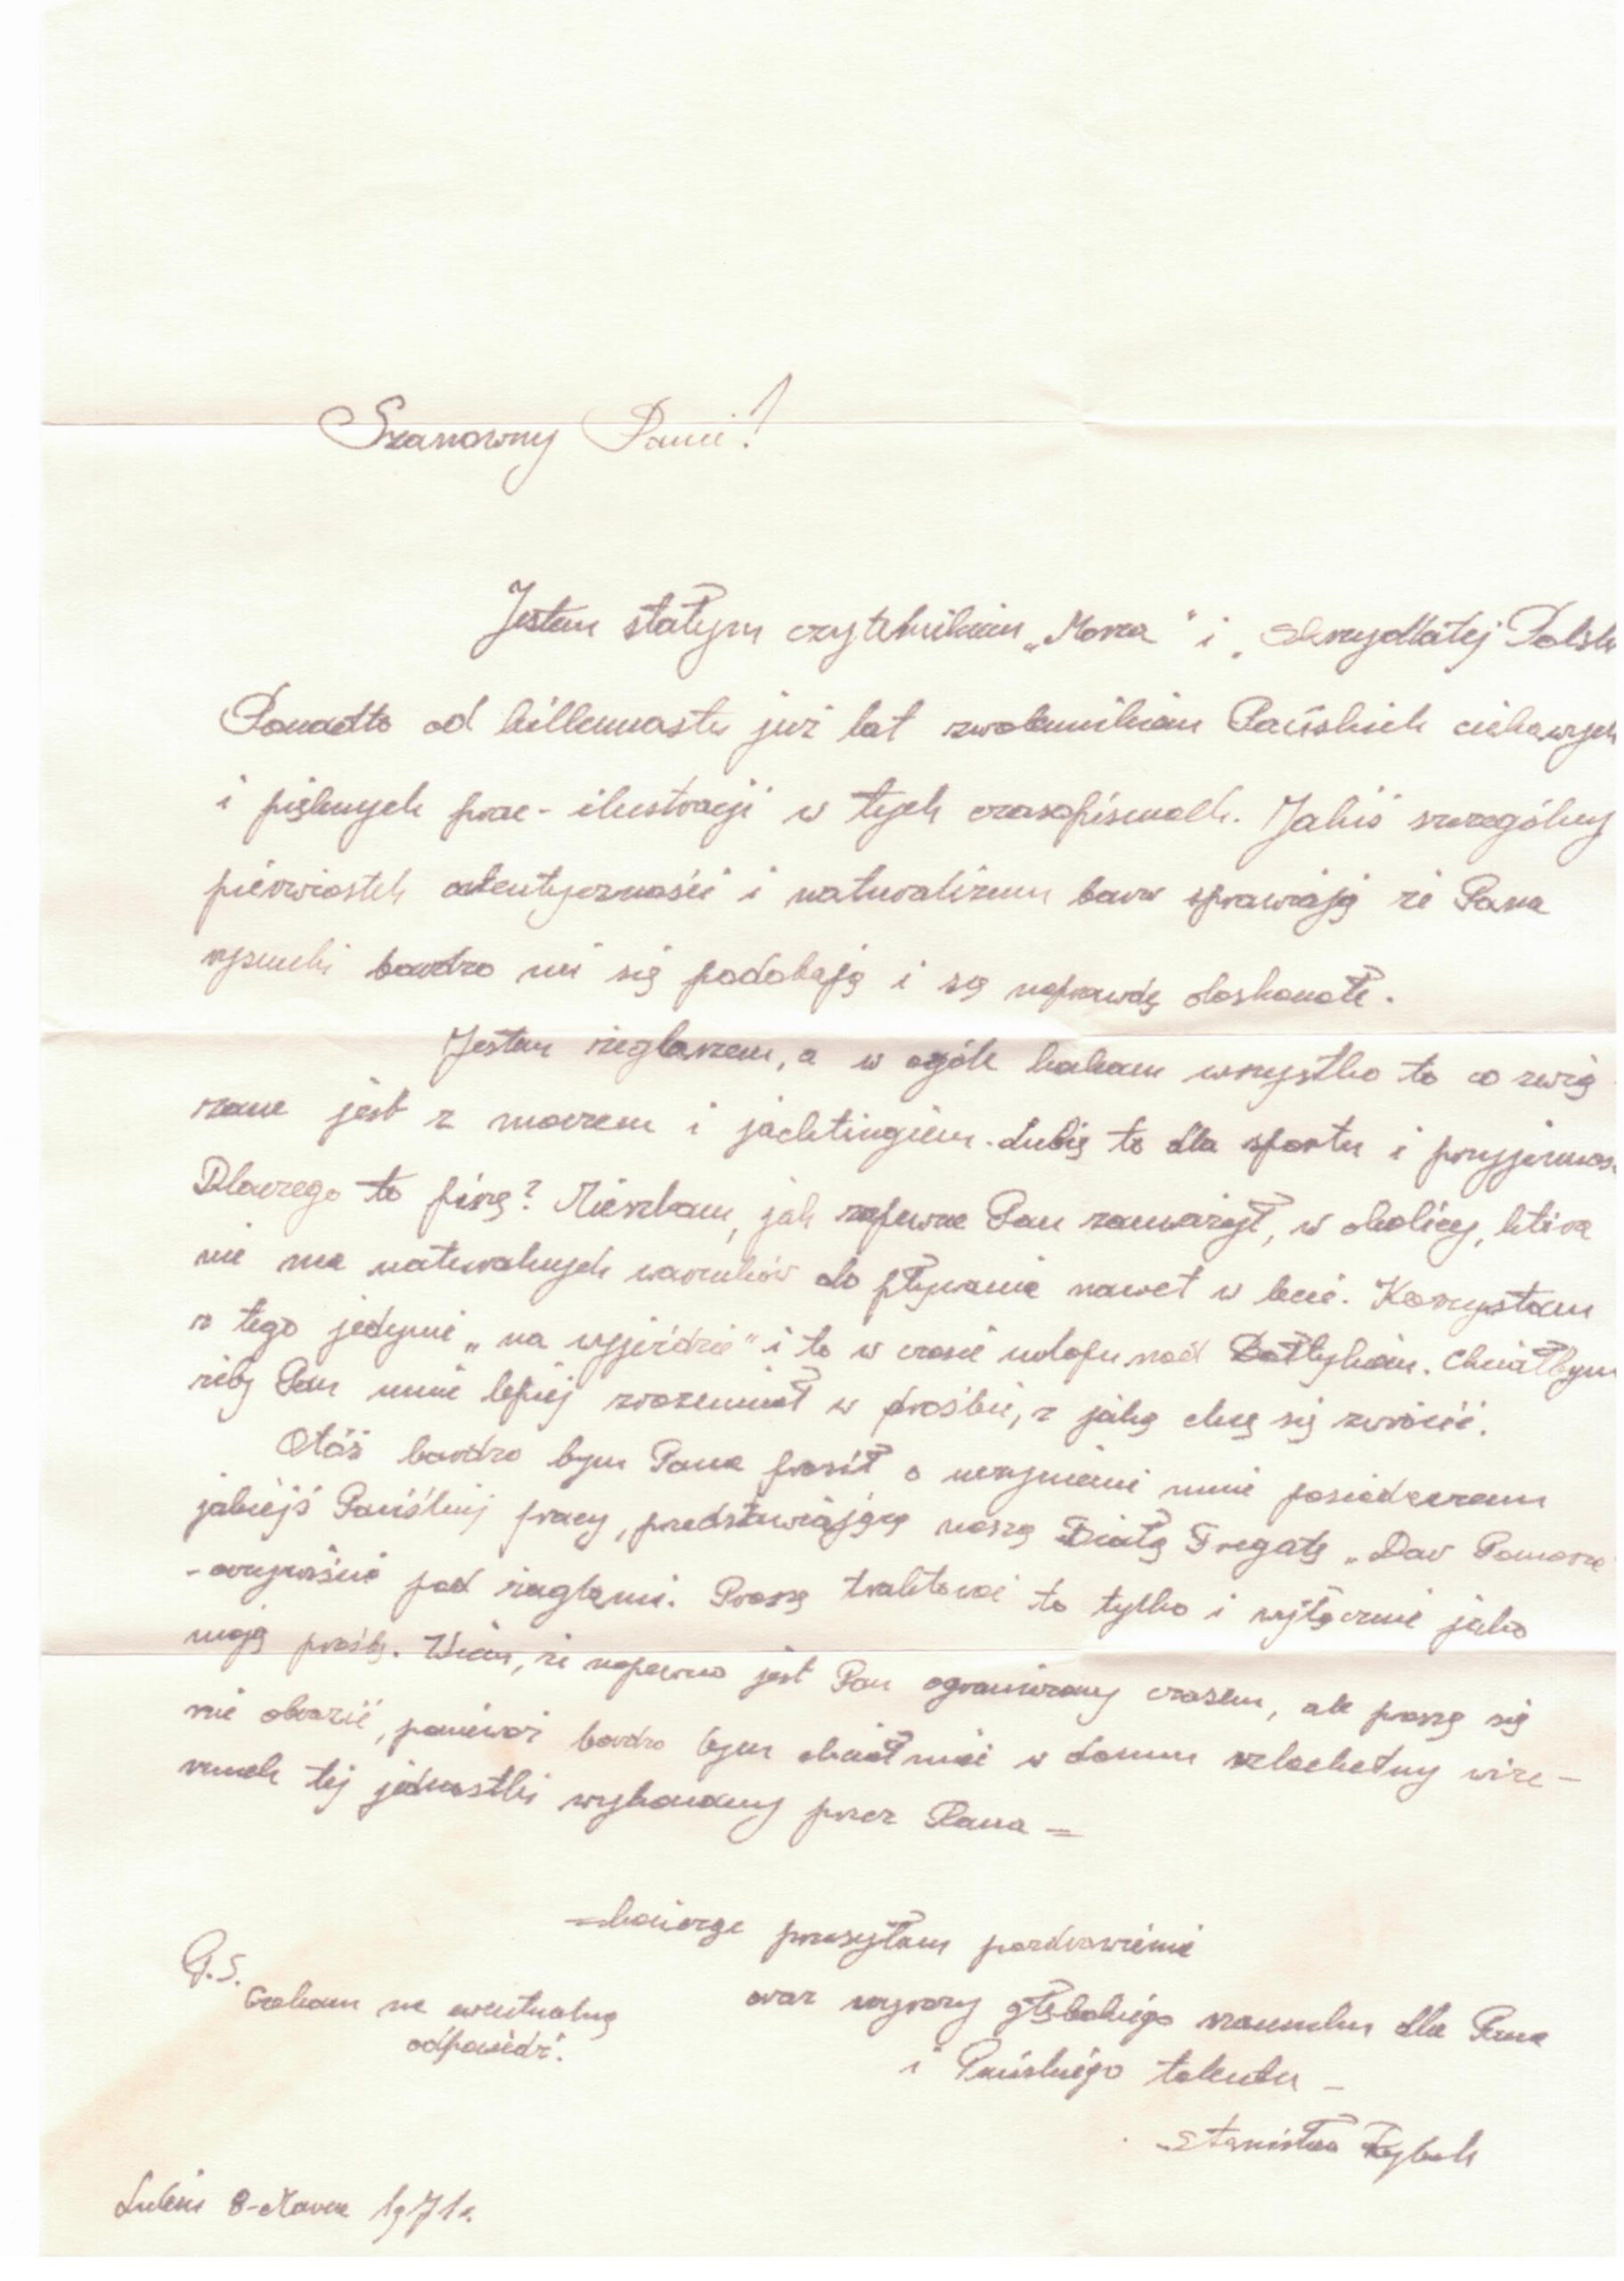 Szanowny Panie!
Jestem stałym czytelnikiem „Morza" i „Skrzydlatej Polsk
Ponadto od killkunastu już lat zwolennikiem Pańskich ciekawych
i pięknych prac - ilustracji w tych czasopismach. Jakiś szczególny
pierwiastek autentyczności i naturalizmu barw sprawiają że Pana
rysunki bardzo mi się podobają i są naprawdę doskonałe.
Jestem żeglarzem, a w ogóle kocham wszystko to co zwią
zane jest z morzem i jachtingiem. Lubię to dla sportu i przyjemnoś
Dlaczego to piszę? Mieszkam, jak zapewne Pan zauważył, w okolicy, która
nie ma naturalnych warunków do pływania nawet w lecie. Korzystam
z tego jedynie „na wyjeździe" i to w czasie urlopu nad Bałtykiem. Chciałbym
żeby Pan mnie lepiej zrozumiał w prośbie, z jaką chcę się zwrócić.
Otóż bardzo bym Pana prosił o uczynienie mnie posiadaczem
jakiejś Pańskiej pracy, przedstawiającą naszą Białą Fregatę „Dar Pomorza
- oczywiście pod żaglami. Proszę traktować to tylko i wyłącznie jako
moją prośbę. Wiem, że napewno jest Pan ograniczony czasem, ale proszę się
nie obrazić, ponieważ bardzo bym chciał mieć w domu szlachetny wize-
runek tej jednostki wykonany przez Pana =
= kończąc przesyłam pozdrowienia
oraz wyrazy głębokiego szacunku dla Pana
i Pańskiego talentu -
Stanisław
P.S.
Czekam na ewentualną
odpowiedź.
Lubin 8-Marca 1971r.